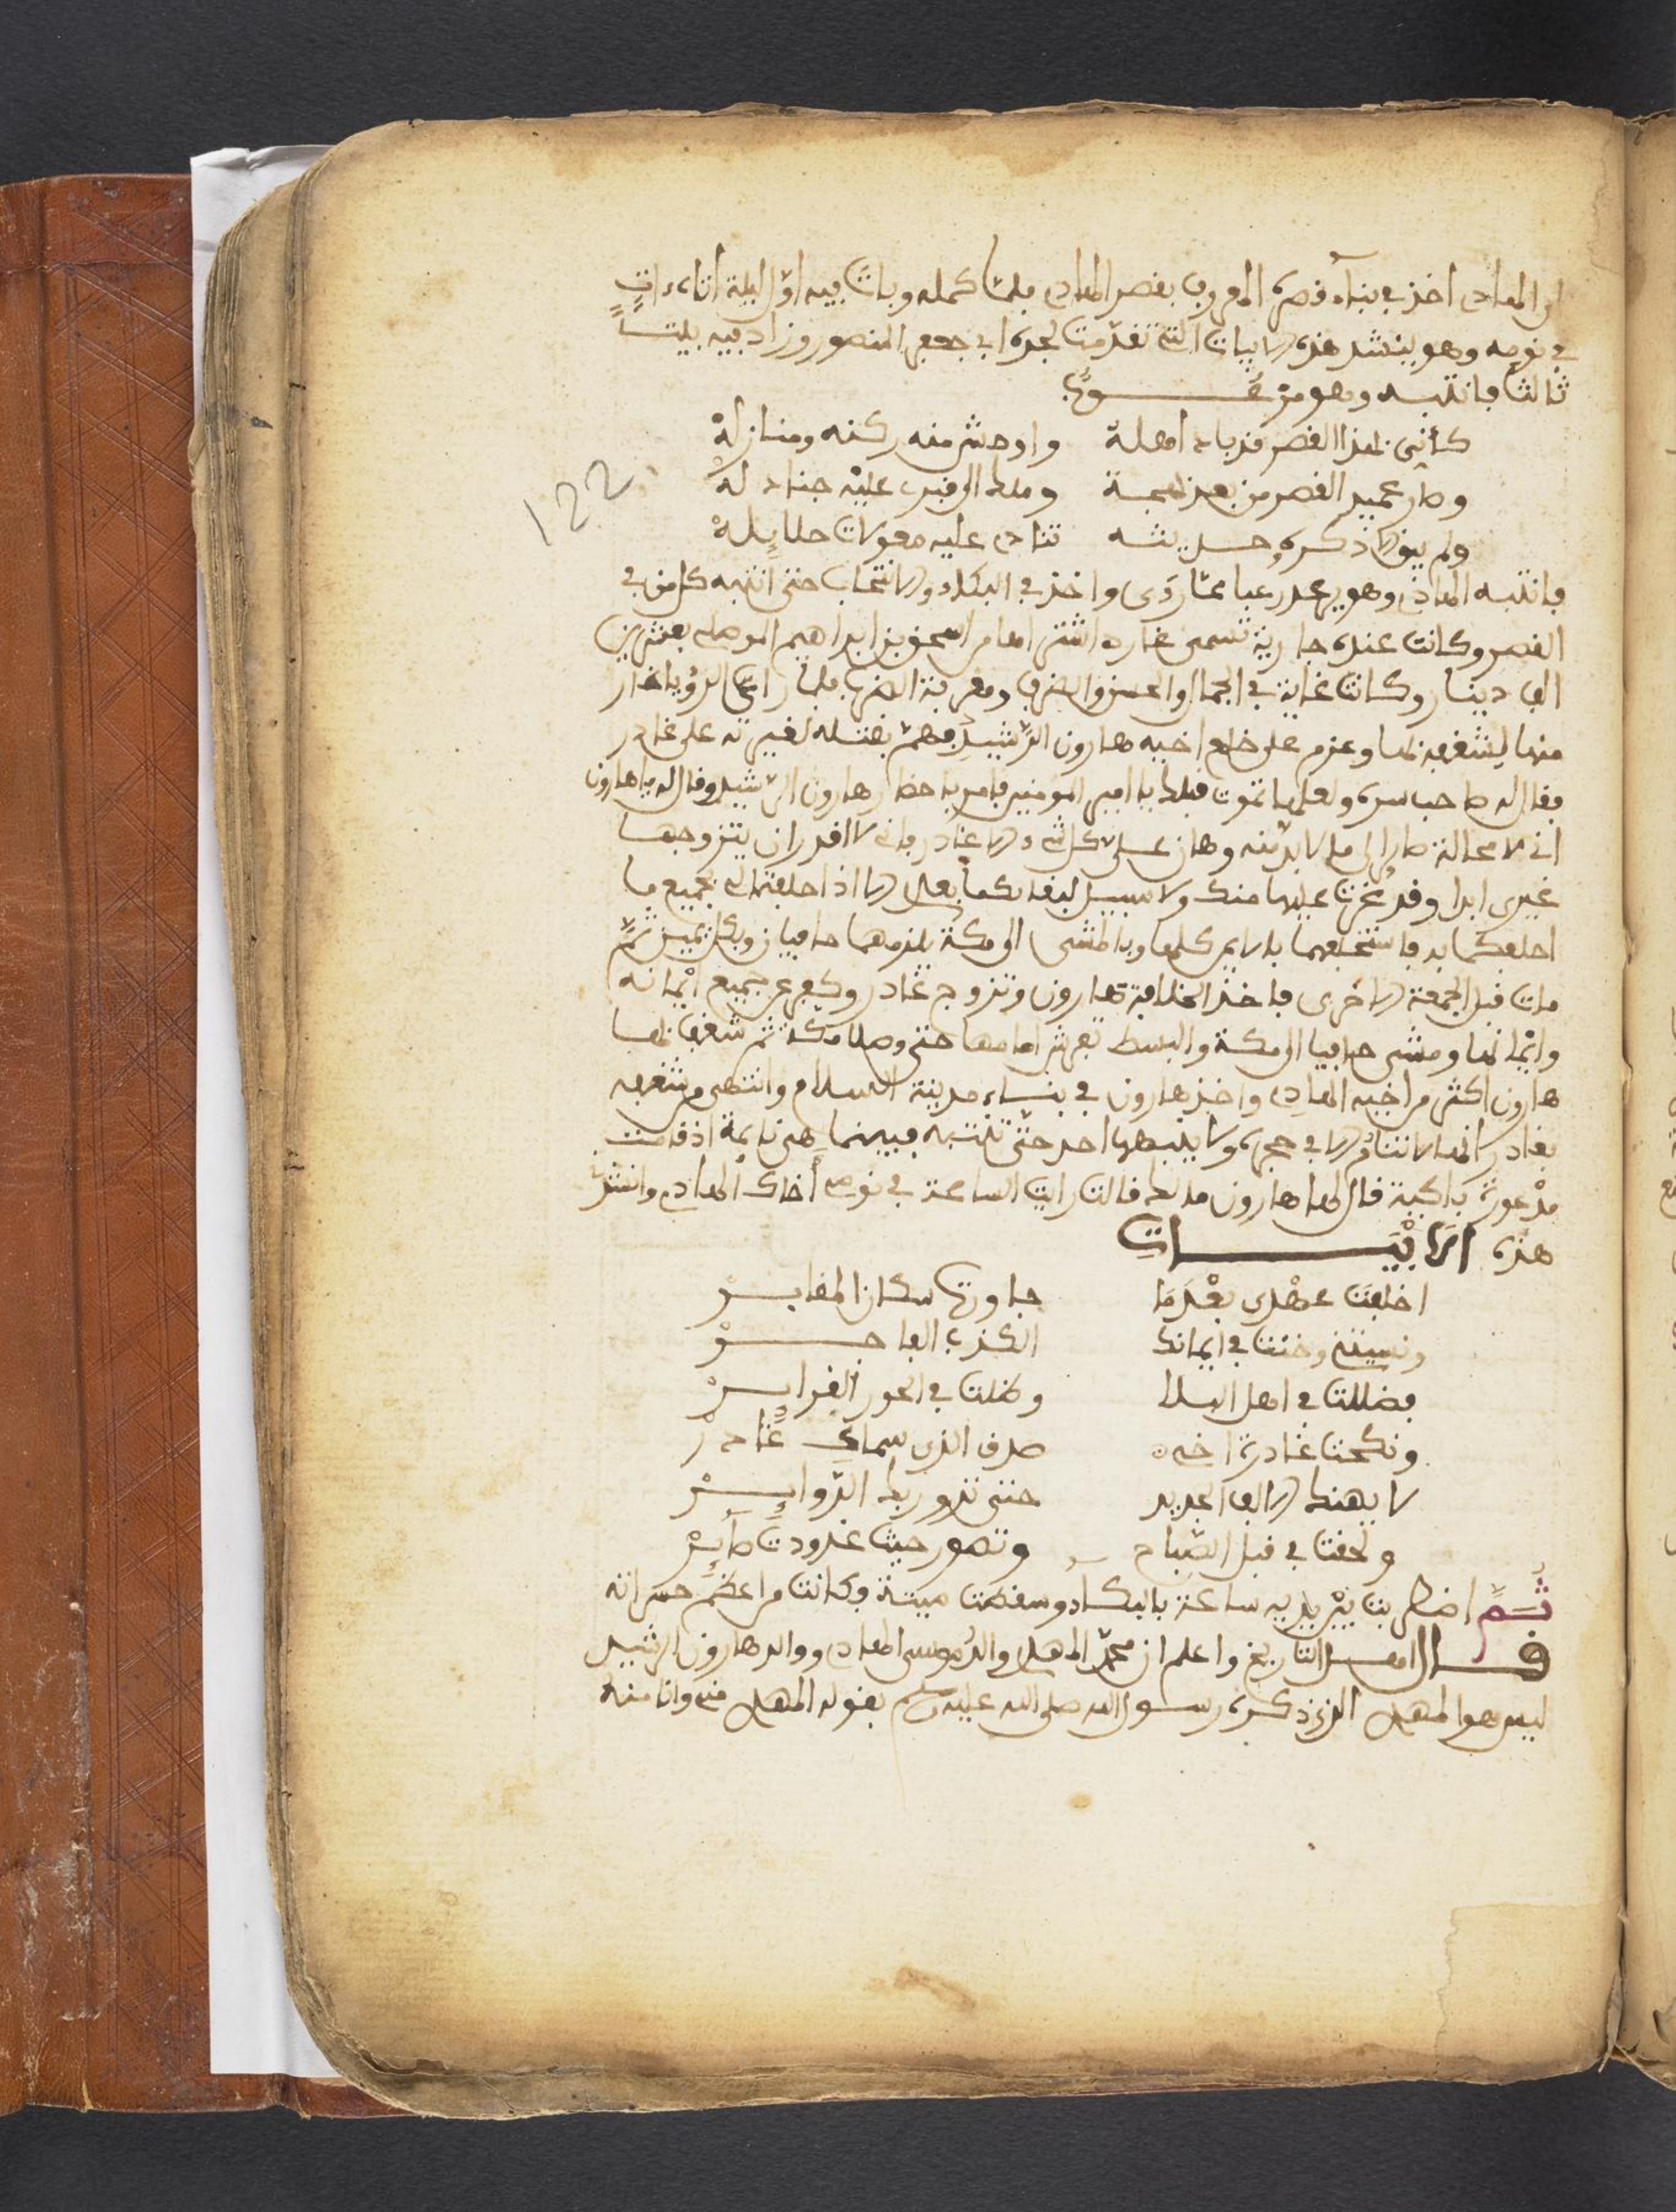 الهادى اخذ في بناء قصره المعروف بقصر الهادى فلما كمله وبات فيه اوّل ليلة اتاه ءات
في نومه وهو ينشد هذه الابيات التي تقدّمت لجده ابي جعفر المنصور وزاد فيه بيتا
ثالثا فانتبه وهو مرعوبًا
كأنى بهذا القصر قد باد أهله واوحش منه ركنه ومنازله
وصار عميد القصر من بعد بهجة وملك الى قبر عليه جنادله
ولم يبق الا ذكره وحديثه تنادى عليه معولات حلايله
فانتبه الهادى وهو يرعد رعبا مما رءى واخذ في البكاء والانتحاب حتى انتبه كل من في
القصر وكانت عنده جارية تسمى غادر اشتراها من اسحق بن ابراهيم الموصلي بعشرين
الف دينار وكانت غاية في الجمال والحسن والظرف ومعرفة الضرب فلما رأى الرؤيا غار
منها لشغفه بها وعزم على خلع اخيه هارون الرّشيد فهمّ بقتله لغيرته على غادر
فقال له صاحب سره ولعلها تموت قبلك يا امير المومنين فامر باحضار هارون الرشيد وقال له يا هارون
انى لا محالة صاير الى ما لا بد منه وهان على كل شيء الا غادر فانى لا اقدر ان يتزوجها
غيرى ابدا وقد غرت عليها منك ولا سبيل لبقائكما بعدى الا اذا حلفتما لى بجميع ما
احلفكما به فاستحلفهما بالايمن كلها وبالمشى الى مكة يلزمهما حافيان وبكل يمين ثمّ
مات قبل الجمعة الاخرى فاخذ الخلافة هارون وتزوج غادر وكفر عن جميع ايمانه
وايمانها ومشى حافيا الى مكة والبسط تفرش امامها حتى وصلا مكة ثم شغف بها
هارون اكثر من اخيه الهادى واخذ هارون في بناء مدينة السلام وانتهى من شغفه
بغادر انها لا تنام الا في حجره ولا ينبهها احد حتى تنتبه فبينما هى نايمة اذ قامت
مذعورة باكية قال لها هارون ما لك قالت رايت الساعة في نومى أخاك الهادى وانشدنى
هذه الابيات
اخلفت عهدى بعد ما جاورت سكان المقابر
ونسيتنى وخنت في ايمانك الكذب الفاجر
فضللت في اهل البلا وظللت في الحور الغراير
ونكحت غادرة اخى صدق الذى سماك غادر
لا يهنك الالف الجديد حتى تدور بك الدّواير
ولحقت بى قبل الصّباح وتصور حيث غدوت صاير
ثمّ اضطربت بين يديه ساعة بالبكاء وسقطت ميتة وكانت من اعظم حسراته
قال اهل التاريخ واعلم ان محمد المهدى والد موسى الهادى ووالد هارون الرشيد
ليس هو المهدى الذى ذكره رسول الله صلى الله عليه وسلم بقوله المهدى منى وانا منه
122